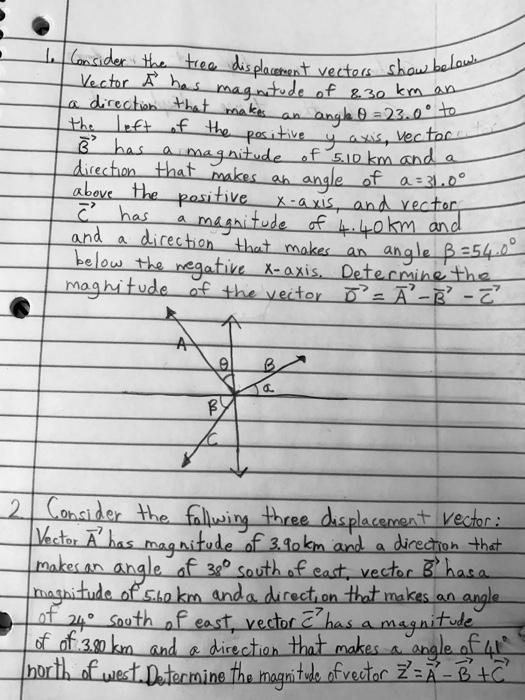 1. Consider the tree displacement vectors show below.
Vector A⃗ has magnitude of 8.30 km an
a direction that makes an angle θ = 23.0° to
the left of the positive y axis, vector
B⃗ has a magnitude of 5.10 km and a
direction that makes an angle of a = 31.0°
above the positive x-axis, and vector
C⃗ has a magnitude of 4.40km and
and a direction that makes an angle β = 54.0°
below the negative x-axis. Determine the
magnitude of the vector D⃗ = A⃗ - B⃗ - C⃗
A
θ B
a
β
C
2 Consider the follwing three displacement vector:
Vector A⃗ has magnitude of 3.90km and a direction that
makes an angle of 38° south of east, vector B⃗ has a
magnitude of 5.60 km and a direction that makes an angle
of 24° south of east, vector C⃗ has a magnitude
of of 3.80 km and a direction that makes a angle of 41°
north of west. Determine the magnitude of vector Z⃗ = A⃗ - B⃗ + C⃗